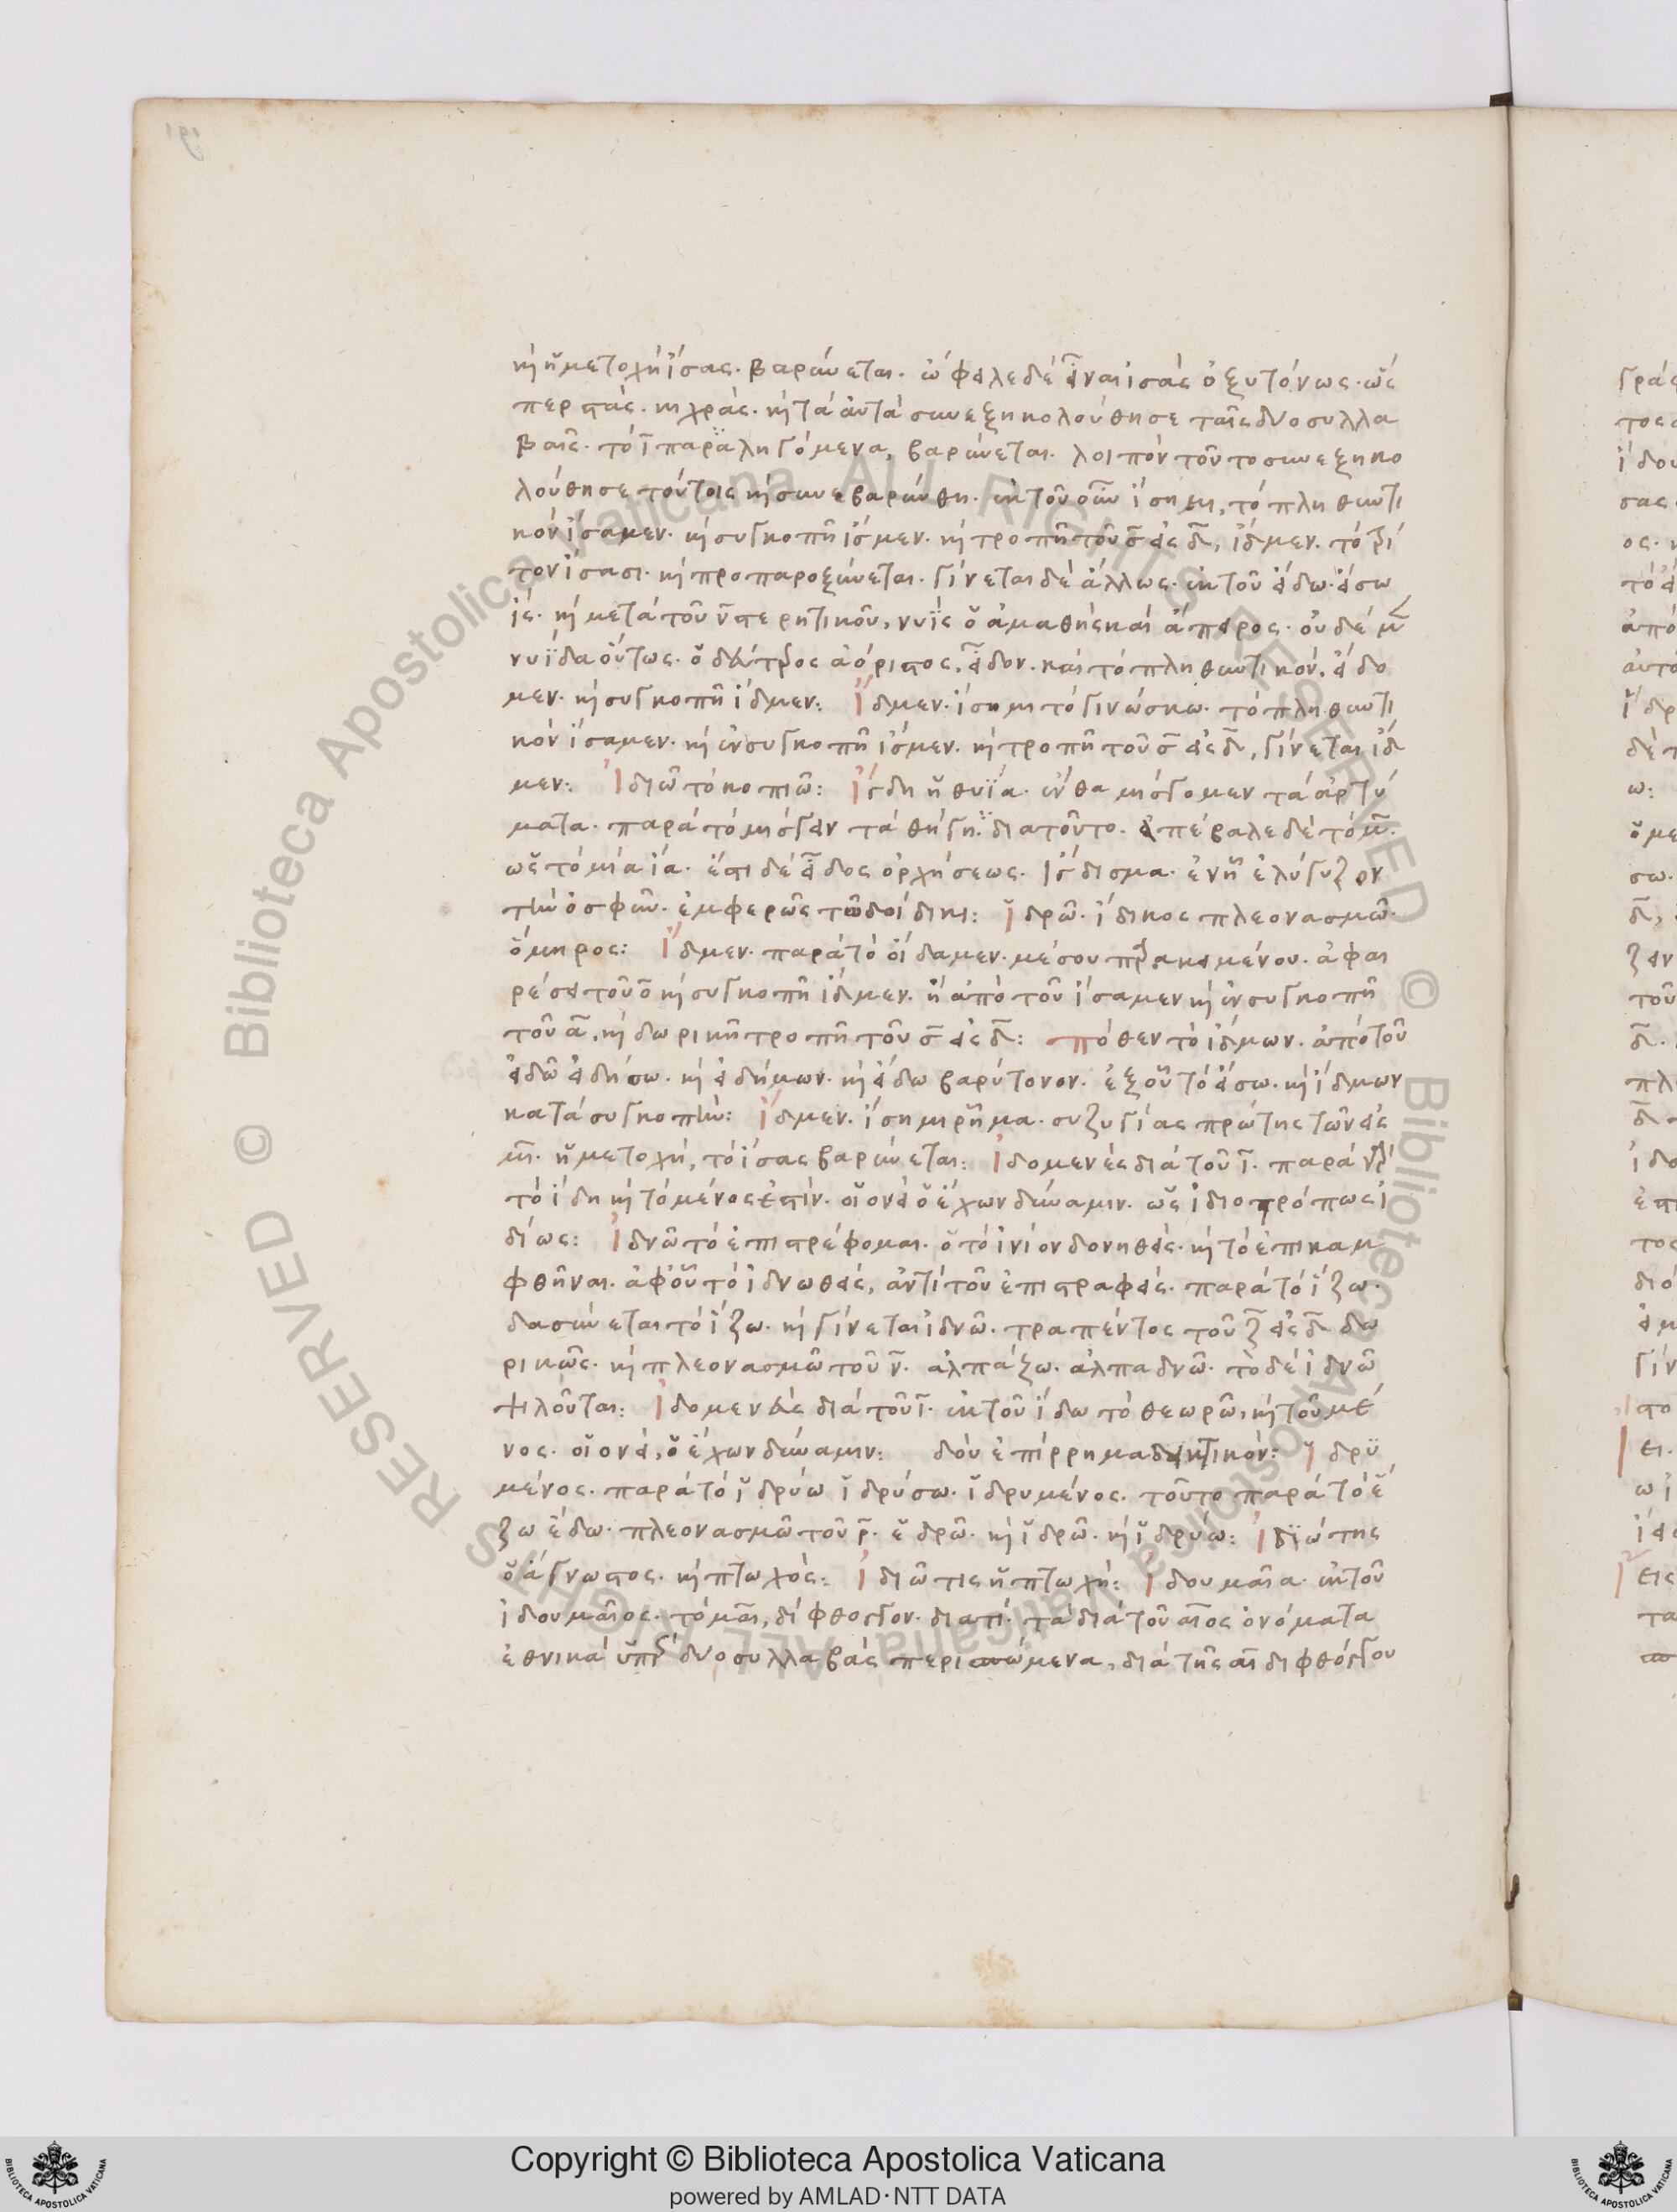 καὶ ἡ μετοχὴ ἴσας. βαρύνεται. ὤφειλε δὲ εἶναι ἰσὰς ὀξυτόνως. ὥς
περ στάς. καὶ χράς. καὶ τὰ αὐτὰ συνεξηκολούθησε ταῖς δυο συλλα
βαῖς. τὸ ϊ παραληγόμενα, βαρύνεται. λοιπὸν τοῦτο συνεξηκο
λούθησε τούτοις καὶ συνεβαρύνθη. ἐκ τοῦ οὖν ἴσημι, τὸ πληθυντι
κὸν ἴσαμεν. καὶ συγκοπῆ ἴσμεν. καὶ τροπῆ τοῦ σ εἰς δ, ἴδμεν. τὸ τρί
τον ἴσασι. καὶ προπαροξύνεται. γίνεται δὲ ἄλλως. ἐκ τοῦ εἴδω. εἴσω
ἴς. καὶ μετὰ τοῦ ν στερητικοῦ, νυῒς ὁ ἀμαθὴς καὶ ἄπειρος. οὐδὲ μ
νυΐδα οὕτως. ὁ δεύτερος ἀόριστος, εἶδον. καὶ τὸ πληθυντικόν, εἴδο
μεν. καὶ συγκοπῆ ἴδμεν: Ἴδμεν. ἴσημι τὸ γινώσκω. τὸ πληθυντι
κὸν ἴσαμεν. καὶ ἐν συγκοπῆ ἴσμεν. καὶ τροπῆ τοῦ σ εἰς δ, γίνεται ἴδ
μεν: Ἰδιῶ τὸ κοπιῶ: Ἴγδη ἡ θυΐα. ἔνθα μίσγομεν τὰ ἀρτύ
ματα. παρὰ τὸ μίσγειν τὰ διὰ τοῦτο. ἀπέβαλε δὲ τὸ μ.
ὡς τὸ μία ἴα. ἔστι δὲ εἶδος ὀρχήσεως. ἴγδισμα. ἐν ἧ ἐλύγιζον
τὴν ὀσφῦν. ἐμφερῶς τῶ δοίδικι: Ἱδρῶ. ἴδικος πλεονασμῶ.
ὅμηρος: Ἴδμεν. παρὰ τὸ οἴδαμεν. μέσου παρακειμένου. ἀφαι
ρέσει τοῦ ο καὶ συγκοπῆ ἴδμεν. ἢ ἀπὸ τοῦ ἴσαμεν καὶ ἐν συγκοπῆ
τοῦ α, καὶ δωρικῆ τροπῆ τοῦ σ εἰς δ: πόθεν τὸ ἴδμων. ἀπὸ τοῦ
εἰδῶ εἰδήσω. καὶ εἰδήμων. καὶ εἴδω βαρύτονον. ἐξ οὗ τὸ εἴσω. καὶ ἴδμων
κατὰ συγκοπήν: Ἴδμεν. ἴσημι ῥῆμα. συζυγίας πρώτης τῶν εἰς
μι. ἡ μετοχή, τὸ ἴσας βαρύνεται: Ἰδομενεὺς διὰ τοῦ ι. παρὰ γὰρ
τὸ ἴδη καὶ τὸ μένος ἐστίν. οἱονεὶ ὁ ἔχων δύναμιν. ὡς ἰδιοτρόπως ἰ
δίως: Ἰδνῶ τὸ ἐπιστρέφομαι. ὁ τὸ ἰνίον δονηθείς. καὶ τὸ ἐπικαμ
φθῆναι. ἀφ' οὗ τὸ ἰδνωθείς, ἀντὶ τοῦ ἐπιστραφείς. παρὰ τὸ ἵζω.
δασύνεται τὸ ἵζω. καὶ γίνεται ἰδνῶ. τραπέντος τοῦ ζ εἰς δ δω
ρικῶς. καὶ πλεονασμῶ τοῦ ν. ἀλπάζω. ἀλπαδνῶ. τὸ δὲ ἰδνῶ
ψιλοῦται: Ἰδομενεὺς διὰ τοῦ ι. ἐκ τοῦ ἴδω τὸ θεωρῶ, καὶ τοῦ μέ
νος. οἱονεί, ὁ ἔχων δύναμιν: δοὺ ἐπίρρημα δεικτικόν: Ἱδρυ
μένος. παρὰ τὸ ἱδρύω ἱδρύσω. ἱδρυμένος. τοῦτο παρὰ τὸ ἕ
ζω ἕδω. πλεονασμῶ τοῦ ρ. ἑδρῶ. καὶ ἱδρῶ. καὶ ἱδρύω: Ἰδιώτης
ὁ ἄγνωστος. καὶ πτωχός: Ἰδιῶτις ἡ πτωχή: Ἰδουμαία. ἐκ τοῦ
ἰδουμαῖος. τὸ μαι, δίφθογγον. διατί. τὰ διὰ τοῦ αιος ὀνόματα
ἐθνικὰ ὑπὲρ δυο συλλαβὰς περισπώμενα, διὰ τῆς αι διφθόγγου